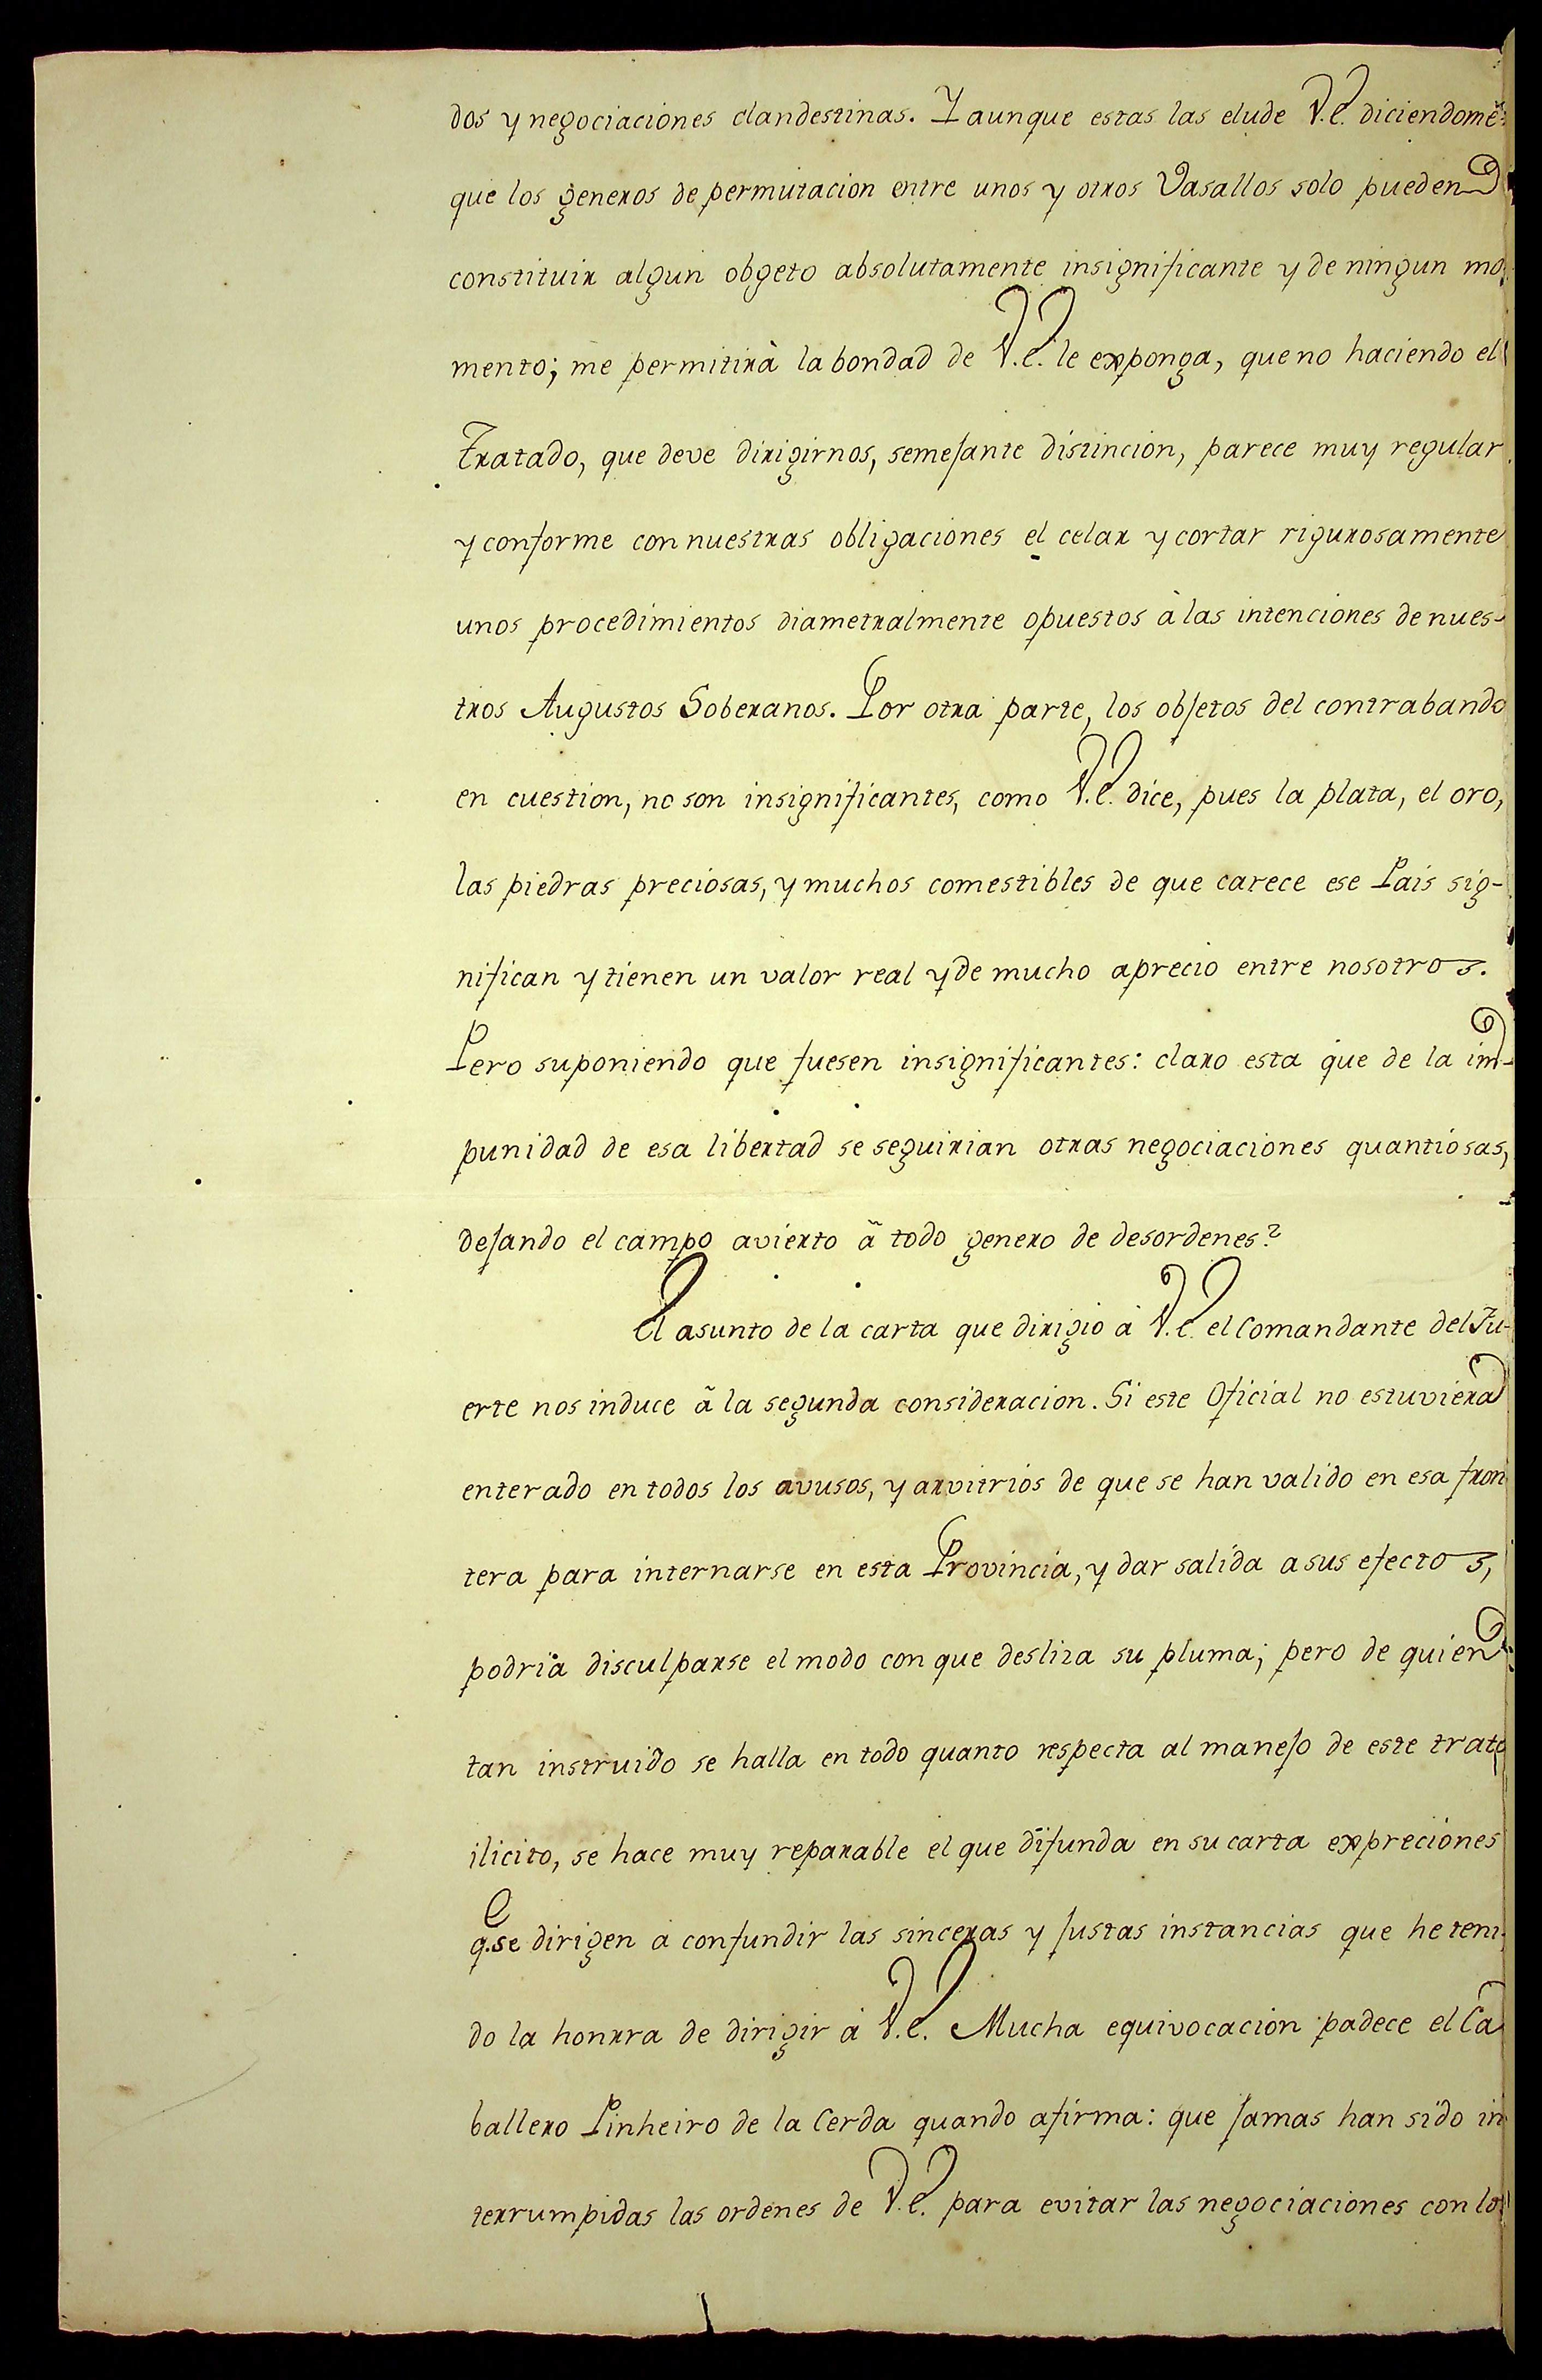 dos y negociaciones clandestinas. Y aunque estas las elude V.E. diciendome:
que los generos de permutacion entre unos y otros Vasallos solo pueden
constituir algun obgeto absolutamente insignificante y de ningun mo-
mento; me permitirà la bondad de V.E. le exponga, que no haciendo el
Tratado, que deve dirigirnos, semejante distincion, parece muy regular
y conforme con nuestras obligaciones el celar y cortar rigurosamente
unos procedimientos diametralmente opuestos à las intenciones de nues-
tros Augustos Soberanos. Por otra parte, los objetos del contrabando
en cuestion, no son insignificantes, como V.E. dice, pues la plata, el oro,
las piedras preciosas, y muchos comestibles de que carece ese Pais sig-
nifican y tienen un valor real y de mucho aprecio entre nosotros.
Pero suponiendo que fuesen insignificantes: claro esta que de la im-
punidad de esa libertad se seguirian otras negociaciones quantiosas,
dejando el campo avierto ã todo genero de desordenes?
El asunto de la carta que dirigio à V.E. el Comandante del Fu-
erte nos induce ã la segunda consideracion. Si este Oficial no estuviera
enterado en todos los avusos, y arvitrios de que se han valido en esa fron
tera para internarse en esta Provincia, y dar salida a sus efectos,
podria disculparse el modo con que desliza su pluma; pero de quien
tan instruido se halla en todo quanto respecta al manejo de este trato
ilicito, se hace muy reparable el que difunda en su carta expreciones
q.e se dirigen a confundir las sinceras y justas instancias que he teni-
do la honrra de dirigir à V.E. Mucha equivocacion padece el Ca
ballero Pinheiro de la Cerda quando afirma: que jamas han sido in
terrumpidas las ordenes de V.E. para evitar las negociaciones con los